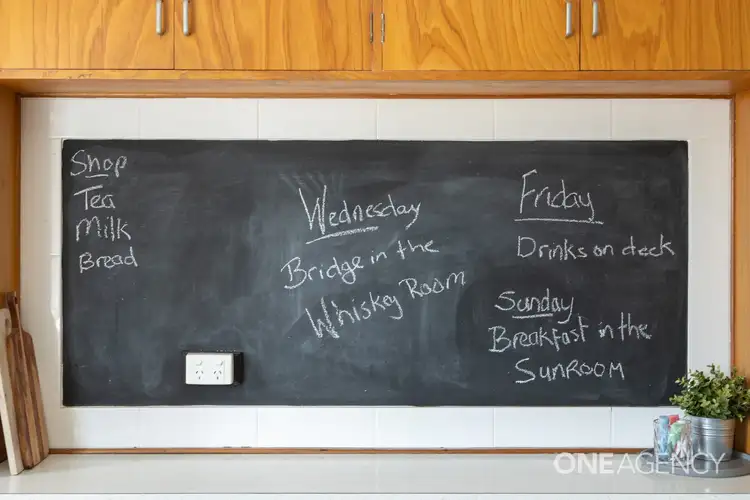 Shop
Tea
Milk
Bread
Wednesday
Bridge in the
Whiskey Room
Friday
Drinks on deck
Sunday
Breakfast in the
Sunroom
ONEAGENCY